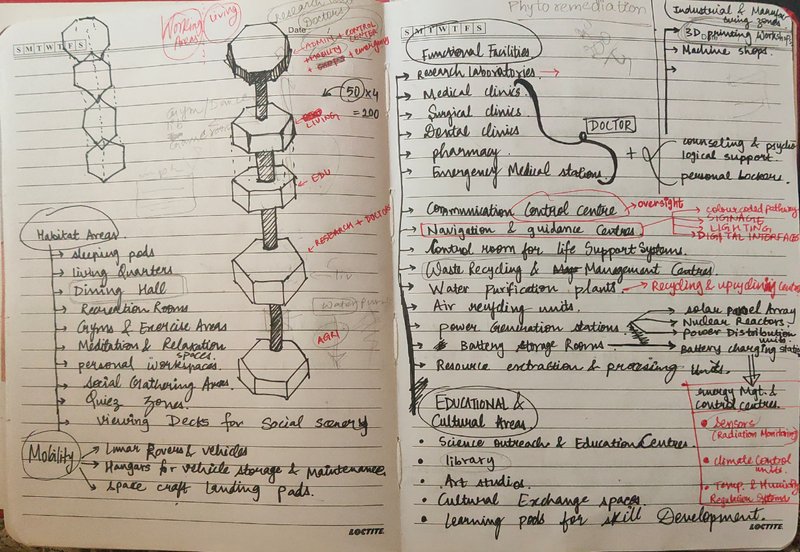 Working Areas
Living
Research Labs
Doctors
Date
S M T W T F S
ADMIN + CONTROL CENTER
+ emergency
50 x 4
= 200
LIVING
EDU
RESEARCH + DOCTORS
AGRI
Habitat Areas
sleeping pods
living Quarters
Dining Hall
Recreation Rooms
Gyms & Exercise Areas
Meditation & Relaxation spaces.
personal workspaces.
social Gathering Areas.
Quiez Zones.
Viewing Decks for Social scenery
Mobility
Lunar Rovers & vehicles
Hangars for vehicle storage & Maintenance
space craft landing pads.
LOCTITE
Phytoremediation
S M T W T F S
Industrial & Manufacturing zones
3D printing workshops
Machine shops.
Functional Facilities
Research laboratories
Medical clinics
Surgical clinics
Dental clinics
pharmacy
Emergency Medical stations.
DOCTOR
+
counseling & psychological support.
personal Lockers.
Communication Control centre
oversight
Navigation & guidance Centres
colourcoded pathway
SIGNAGE
LIGHTING
DIGITAL INTERFACES
Control room for life Support Systems.
Waste Recycling & Management Centres.
Water Purification plants
Recycling & upcycling centre
Air recycling units.
power Generation stations
solar panel Array
Nuclear Reactors.
Power Distribution units
Battery storage Rooms
Battery charging stati
Resource extraction & processing units.
energy Mgt. & control centres.
Sensors (Radiation Monitoring)
climate Control units.
Temp. & Humidity Regulation Systems
EDUCATIONAL & Cultural Areas
Science outreach & Education Centres.
library
Art studios.
Cultural Exchange spaces.
Learning pods for skill Development.
LOCTITE